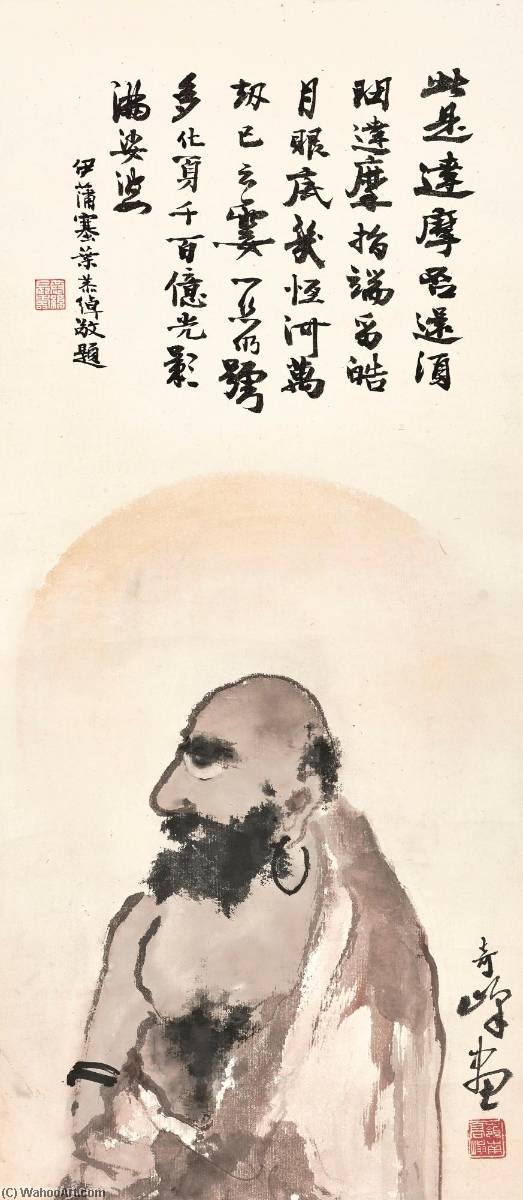 此是達摩否還須
問達摩指端留皓
月眼底幾恆河萬
劫已云一仍
多化身千百億光影
滿娑婆
伊蒲塞葉恭綽敬題
奇峰畫
(C) WahooArt.com